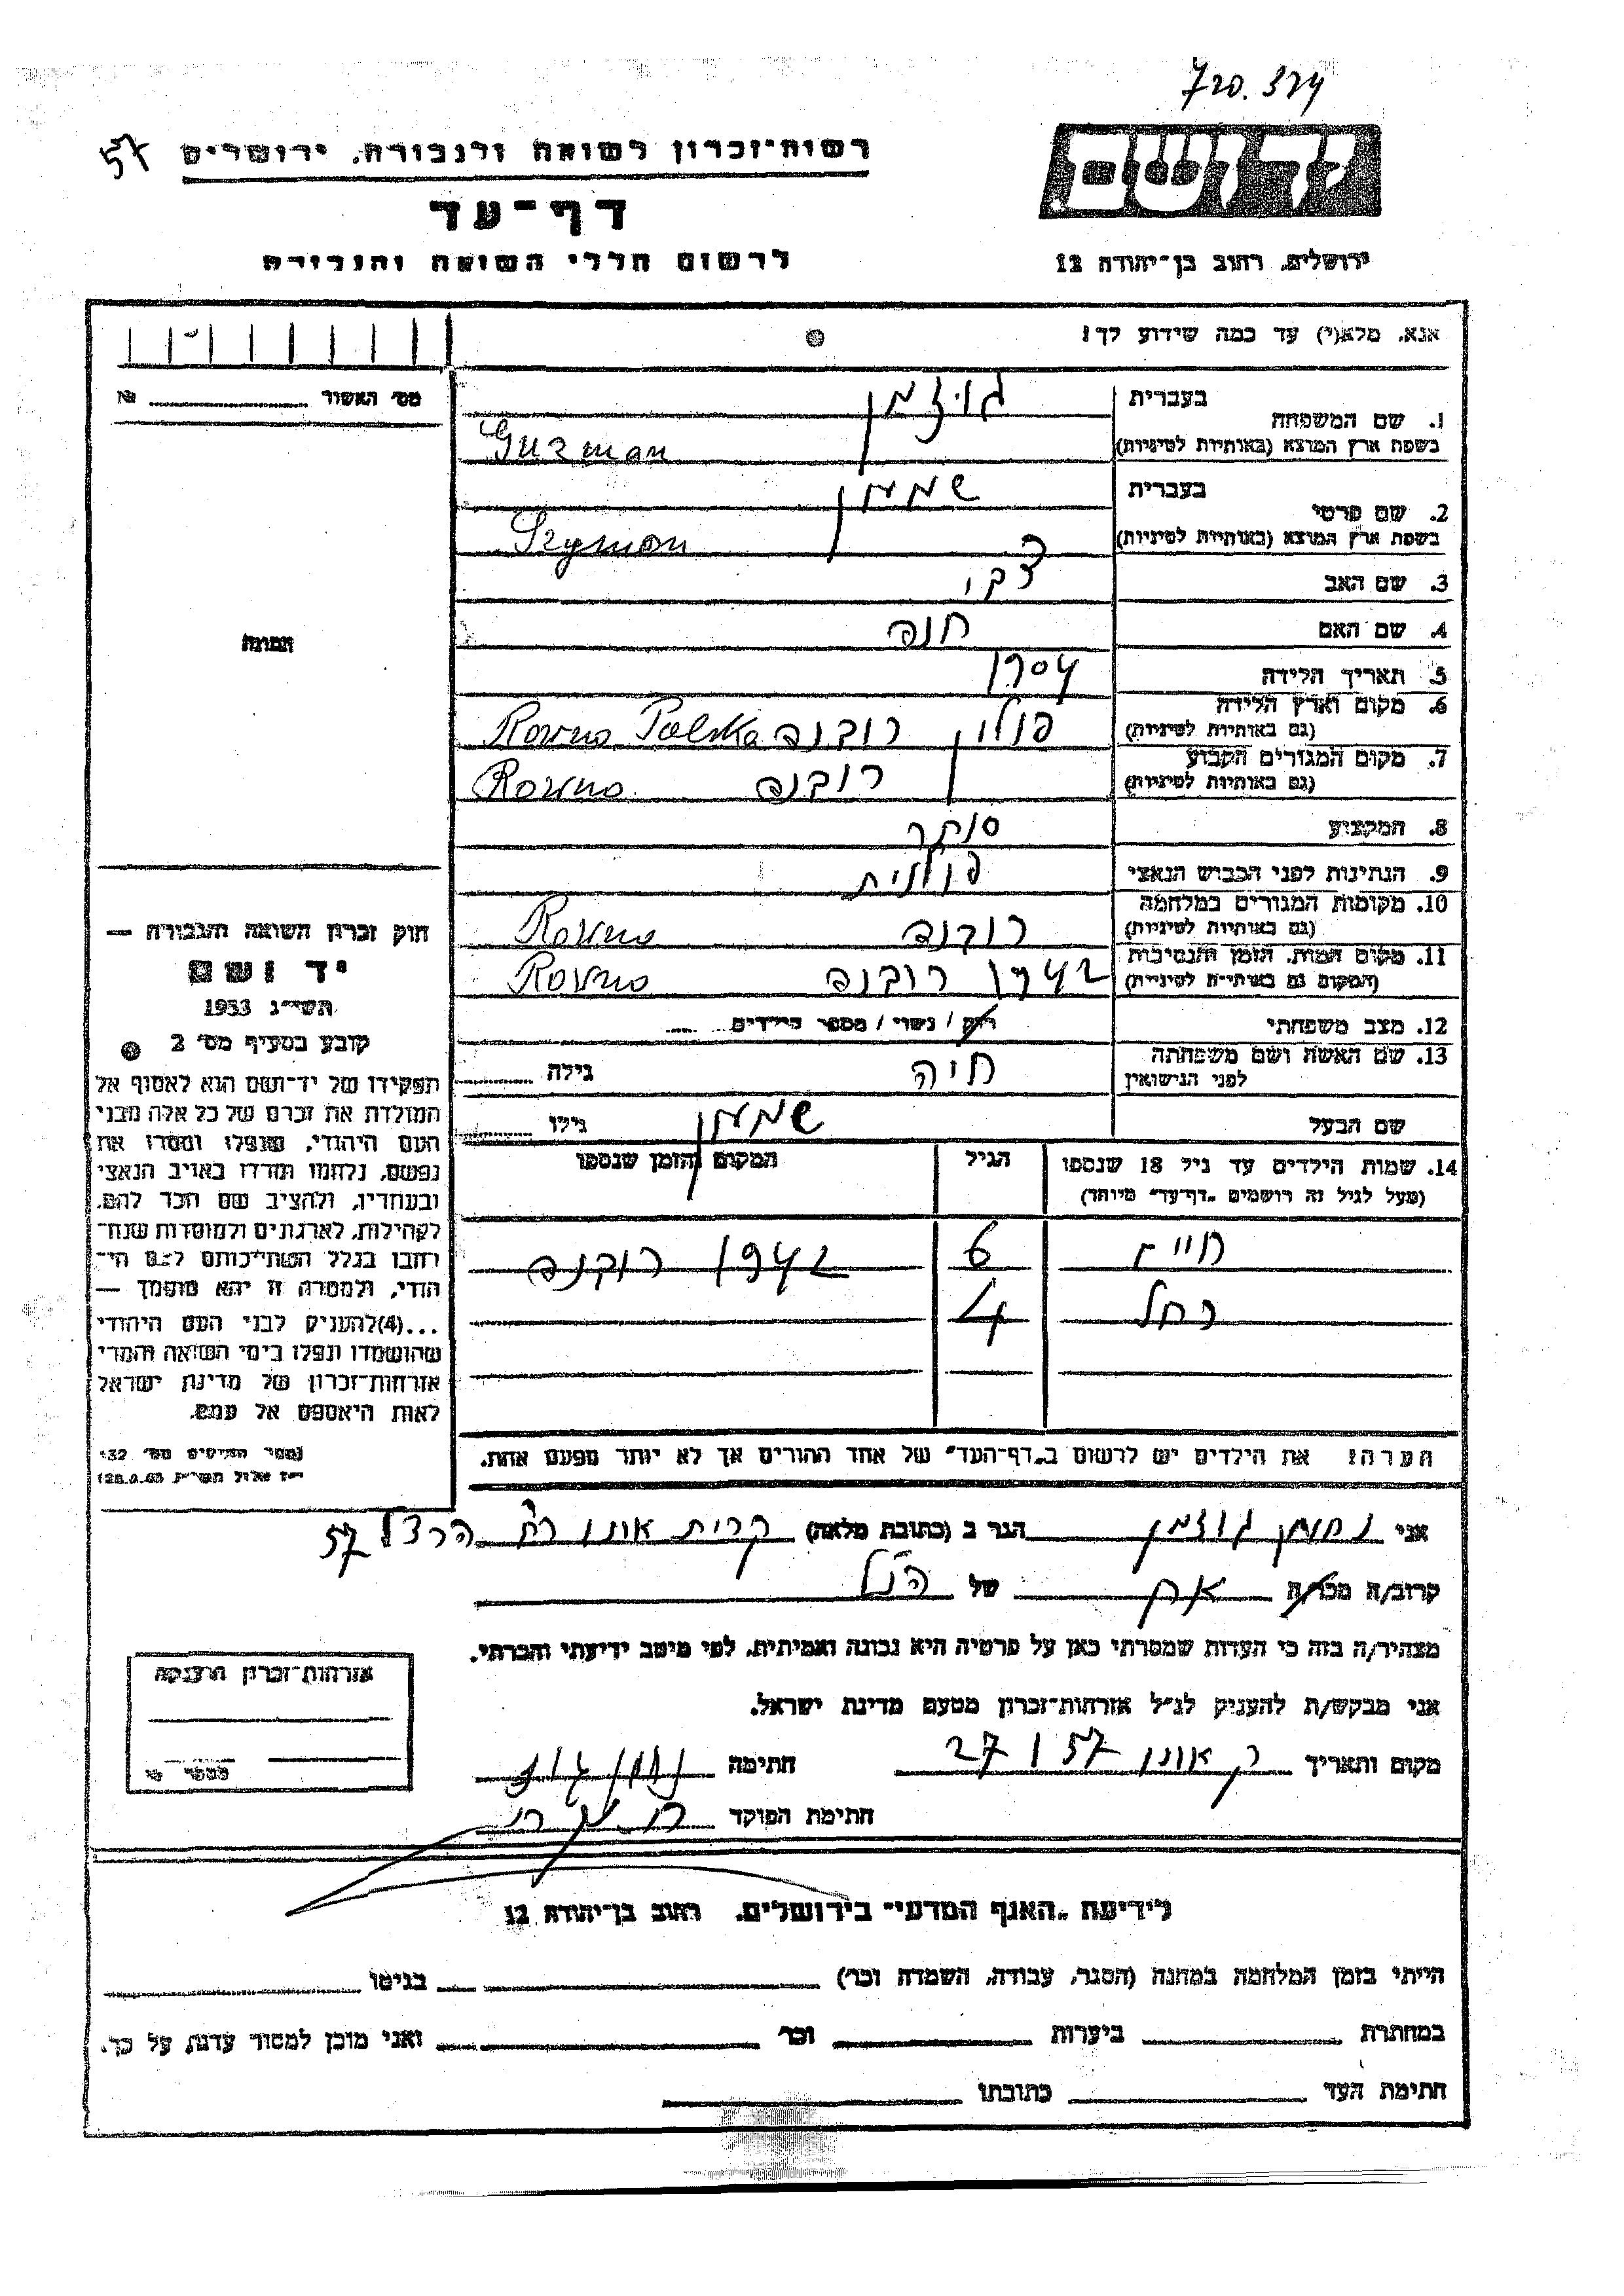 720.324
57
רשות־זכרון לשואה ולגבורה, ירושלים
דף־עד
לרשום חללי השואה והגבורה
יד ושם
ירושלים, רחוב בן־יהודה 12
אנא, מלא(י) עד כמה שידוע לך!
מס׳ האשור № 
1. שם המשפחה
בעברית גוזמן
בשפת ארץ המוצא (באותיות לטיניות) Guzman
2. שם פרטי
בעברית שמעון
בשפת ארץ המוצא (באותיות לטיניות) Szymon
3. שם האב צבי
4. שם האם חנה
5. תאריך הלידה 1904
6. מקום וארץ הלידה (גם באותיות לטיניות) פולין רובנה Rowno Polska
7. מקום המגורים הקבוע (גם באותיות לטיניות) רובנה Rowno
8. המקצוע סוחר
9. הנתינות לפני הכבוש הנאצי פולנית
10. מקומות המגורים במלחמה (גם באותיות לטיניות) רובנה Rowno
11. מקום המות, הזמן והנסיבות (המקום גם באותיות לטיניות) 1942 רובנה Rowno
12. מצב משפחתי רוק / נשוי / מספר הילדים
13. שם האשה ושם משפחתה לפני הנישואין חיה גילה
שם הבעל שמעון גילו
14. שמות הילדים עד גיל 18 שנספו
(מעל לגיל זה רושמים „דף־עד" מיוחד)
הגיל
המקום והזמן שנספו
חיים 6 1942 רובנה
רחל 4
הערה: את הילדים יש לרשום ב„דף־העד" של אחד ההורים אך לא יותר מפעם אחת.
תמונה
חוק זכרון השואה והגבורה —
יד ושם
תשי״ג 1953
קובע בסעיף מס׳ 2
תפקידו של יד־ושם הוא לאסוף אל
המולדת את זכרם של כל אלה מבני
העם היהודי, שנפלו ומסרו את
נפשם, נלחמו ומרדו באויב הנאצי
ובעוזריו, ולהציב שם וזכר להם,
לקהילות, לארגונים ולמוסדות שנח־
רבו בגלל השתייכותם לעם הי־
הודי, ולמטרה זו יהא מוסמך —
...(4)להעניק לבני העם היהודי
שהושמדו ונפלו בימי השואה והמרי
אזרחות־זכרון של מדינת ישראל
לאות היאספם אל עמם.
אני נחמן גוזמן הגר ב (כתובת מלאה) קרית אונו רח׳ הרצל 57
קרוב/ה מכר/ה אח של הנ״ל
מצהיר/ה בזה כי העדות שמסרתי כאן על פרטיה היא נכונה ואמיתית, לפי מיטב ידיעתי והכרתי.
אני מבקש/ת להעניק לנ״ל אזרחות־זכרון מטעם מדינת ישראל.
מקום ותאריך ק אונו 27/ 57 חתימה
חתימת הפוקד
אזרחות־זכרון הוענקה
לידיעת „האגף המדעי" בירושלים, רחוב בן־יהודה 12
הייתי בזמן המלחמה במחנה (הסגר, עבודה, השמדה וכו׳) בגיטו
במחתרת ביערות וכו׳ ואני מוכן למסור עדות על כך.
חתימת העד כתובתו